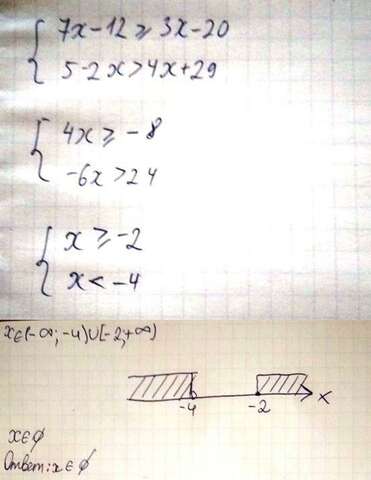 7x-12≥3x-20
5-2x>4x+29
4x≥-8
-6x>24
x≥-2
x<-4
x∈(-∞;-4)∪[-2;+∞)
-4 -2 x
x∈∅
Ответ: x∈∅